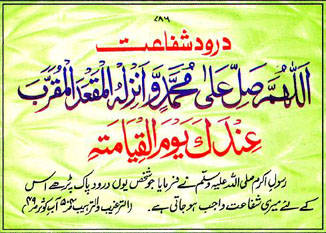 ۷۸۶
درود شفاعت
اَللّٰهُمَّ صَلِّ عَلٰى مُحَمَّدٍ وَّاَنْزِلْهُ الْمَقْعَدَ الْمُقَرَّبَ
عِنْدَكَ يَوْمَ الْقِيَامَتِهِ
رسول اکرم صلی اللہ علیہ وسلم نے فرمایا جو شخص یوں درود پاک پڑھے اس
کے لئے میری شفاعت واجب ہو جاتی ہے۔ (الترغیب والترہیب